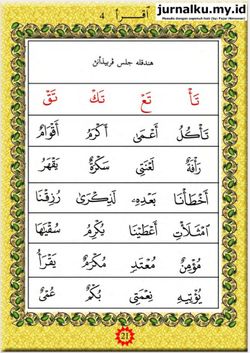 jurnalku.my.id
اقرأ 4
هندقله جلس قرببيذاءن
تَأْ تَعْ تَكْ تَقْ
تَأْكُلُ أَعْمَى أَكْرَمُ أَقْوَامُ
رَأْفَةٌ لَعْنَتِي سَكْرَةٌ يَقْهَرُ
أَخْطَأْنَا بَعْدِهِ لَذِكْرَى رُزِقْنَا
امْتَلَأْتِ أَعْطَيْنَا يُكْرِمُ سُقْيَهَا
مُؤْمِنٌ مُعْتَدٍ مُكْرَمٌ يَقْرَأُ
يُؤْتِيهِ نِعْمَتِي بُكْمٌ عُقْبَى
21